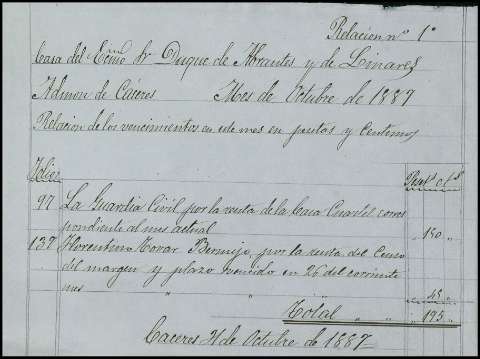 Relacion nº 1º
Casa del Ecmo Sr Duque de Abrantes y de Linares
Admon de Cáceres Mes de Octubre de 1887
Relacion de los vencimientos en este mes en pesetas y centimos
Folios Peset.s C.t.s
97 La Guardia Civil por la renta de la Casa Cuartel corres
pondiente al mes actual " 150 "
137 Florentino Tovar Bermejo, por la renta del Censo
del margen y plazo vencido en 26 del corriente
mes " " " 45 "
Total " " 195 "
Caceres 31 de Octubre de 1887